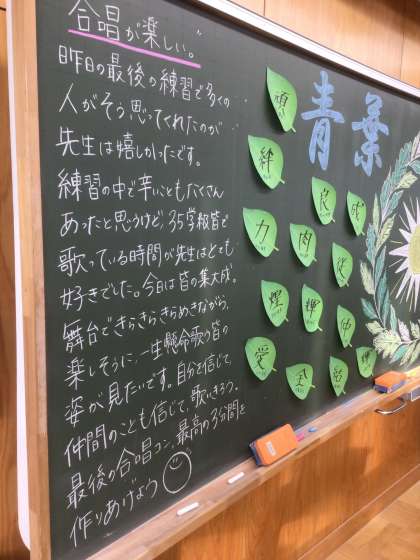 合唱が楽しい。
昨日の最後の練習で多くの
人がそう思ってくれたのが
先生は嬉しかったです。
練習の中で辛いこともたくさん
あったと思うけど、35学級皆で
歌っている時間が先生はとても
好きでした。今日は皆の集大成。
舞台できらきらきらめきながら、
楽しそうに、一生懸命歌う皆の
姿が見たいです。自分を信じて、
仲間のことも信じて、歌いきろう。
最後の合唱コン、最高の3分間を
作りあげよう
青葉
絆
良
成
力
肉
従
煌
輝
仲
愛
全
話